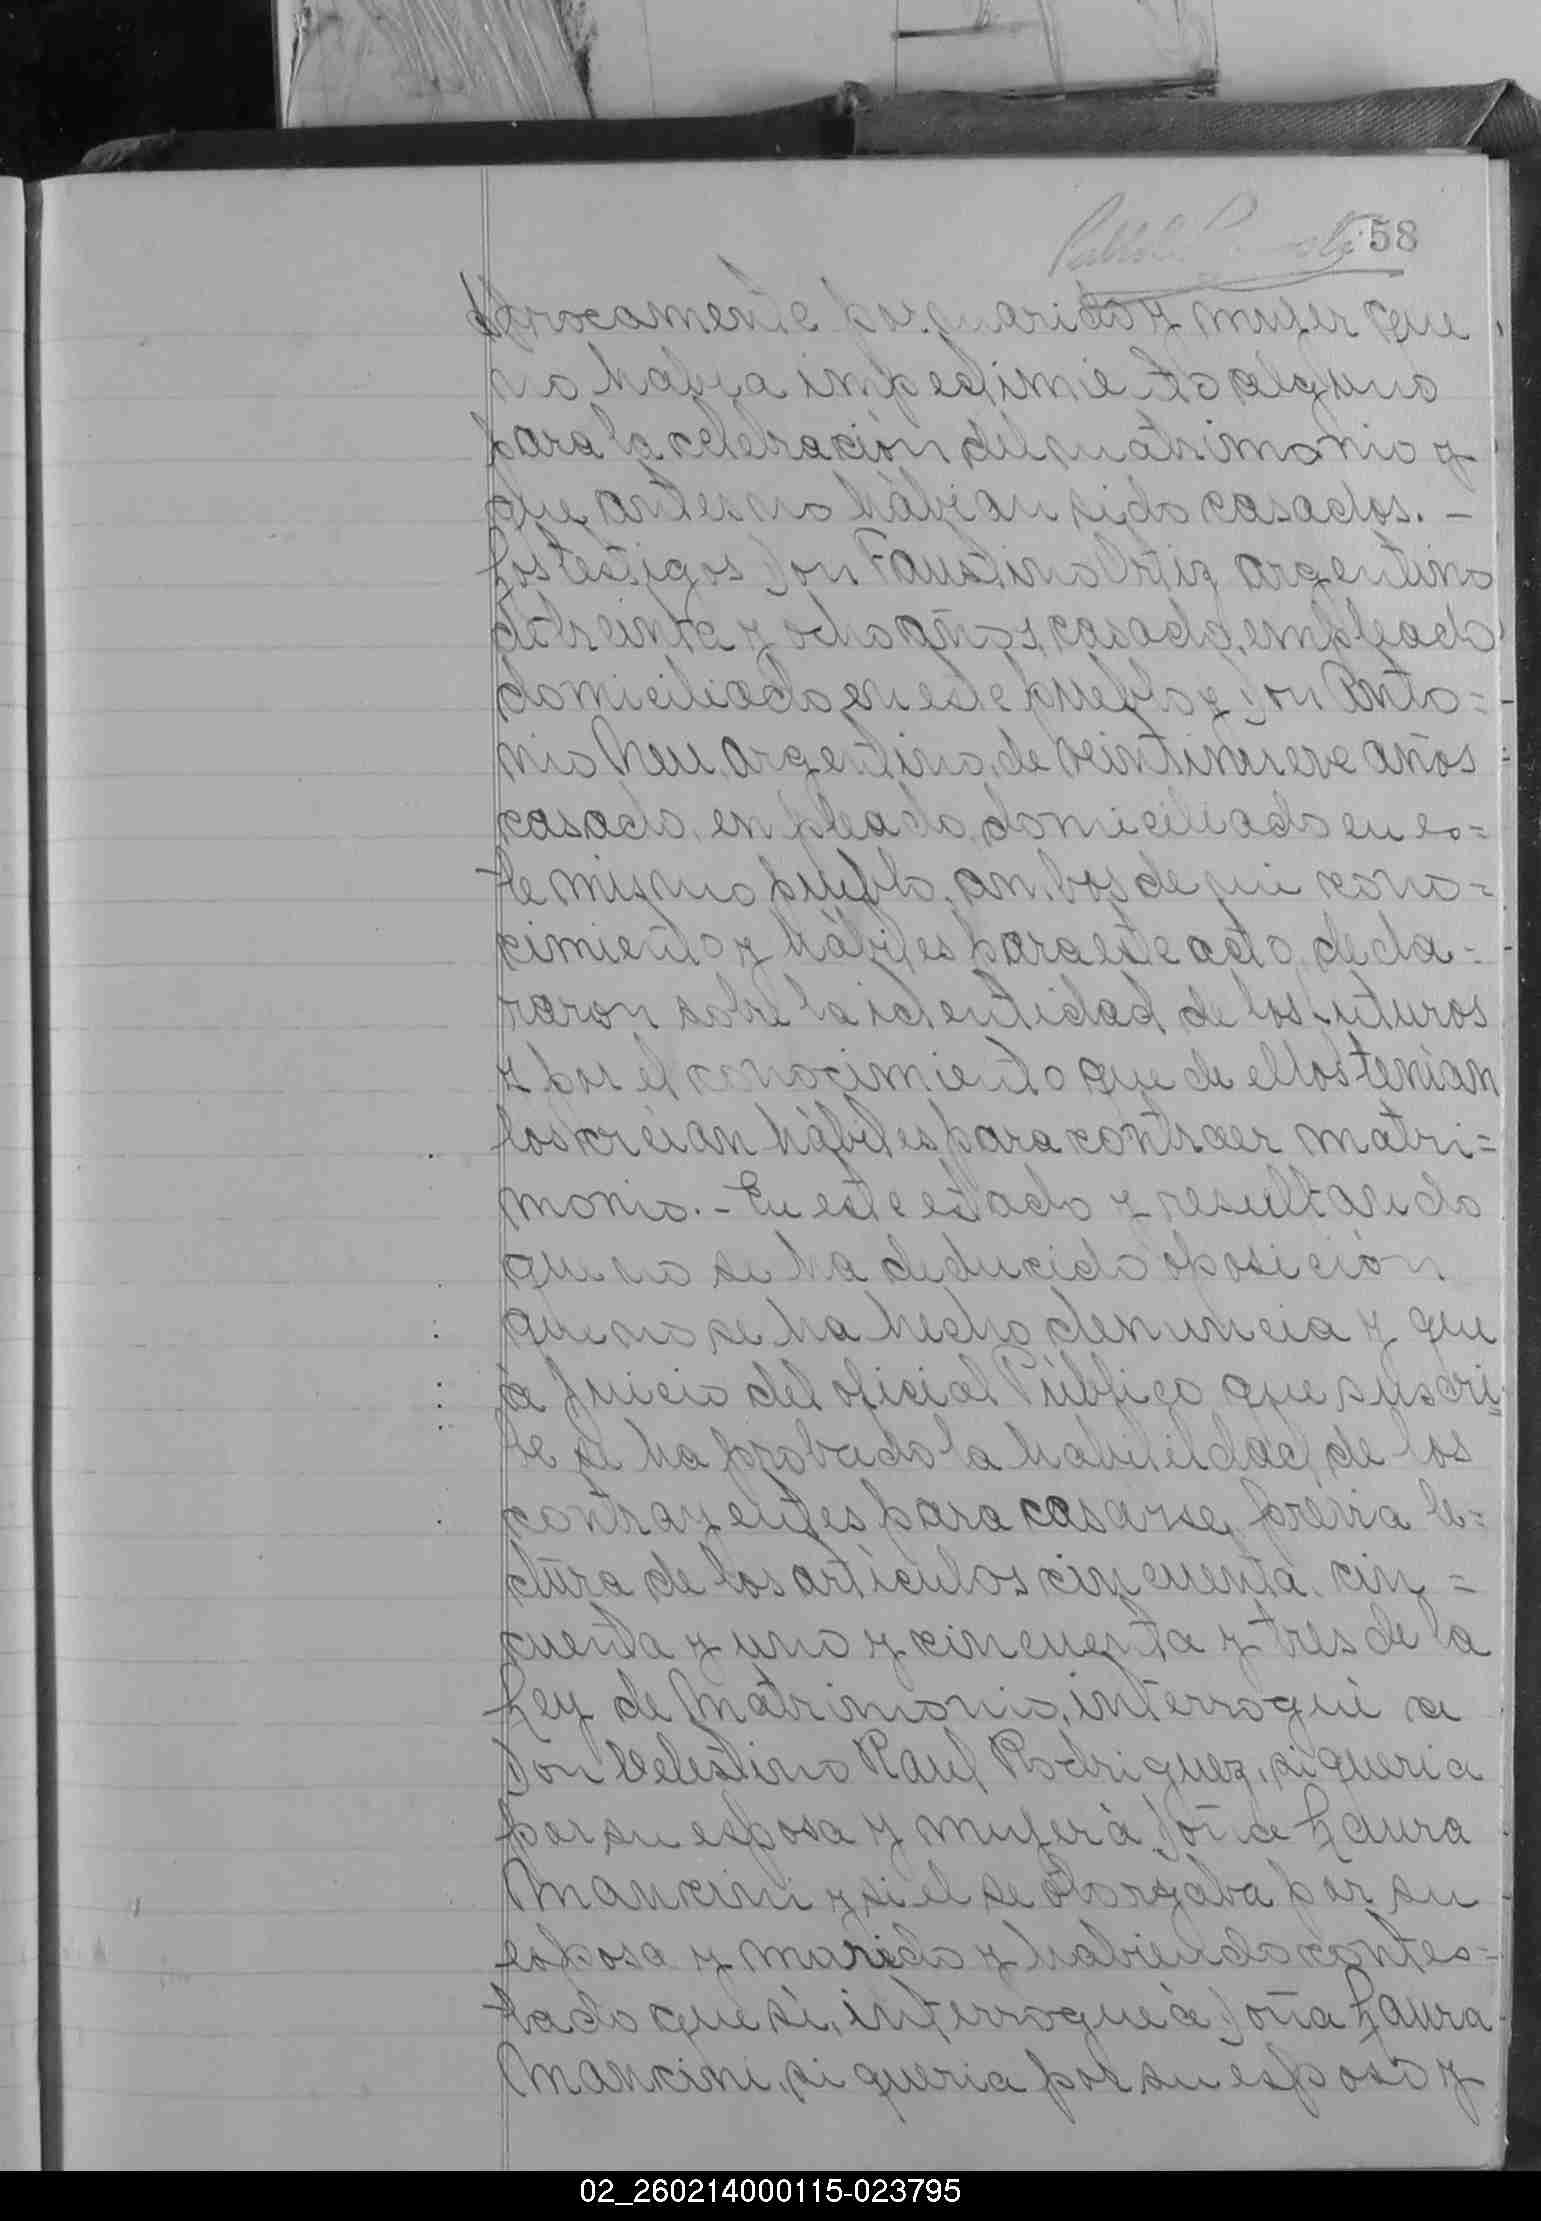 58
procamente por marido y mujer que
no habia impedimieto alguno
para la celebración del matrimonio y
que antes no habian sido casados. -
Los testigos Don Faustino Ortiz argentino
de treinta y ocho años, casado, empleado
domiciliado en este pueblo y Don Anto=
nio Neu, argentino, de veintinueve años
casado, empleado, domiciliado en es=
te mismo pueblo, ambos de mi cono=
cimiento y hábiles para este acto, decla=
raron sobre la identidad de los futuros
y por el conocimiento que de ellos tenian
los creian hábiles para contraer matri=
monio. - En este estado y resultando
que no se ha deducido oposición
que no se ha hecho denuncia y que
á juicio del oficial Público que suscri=
be se ha probado la habilidad de los
contrayentes para casarse, prévia le=
ctura de los articulos cincuenta, cin=
cuenta y uno y cincuenta y tres de la
Ley de Matrimonio, interrogué a
Don Celestino Raul Rodriguez, si queria
por su esposa y mujer á Doña Laura
Mancini y si el se otorgaba por su
esposo y marido y habiendo contes=
tado que si, interrogué á Doña Laura
Mancini, si queria por su esposo y
02_260214000115-023795